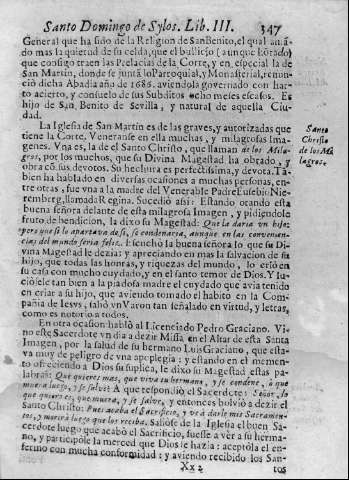 Santo Domingo de Sylos. Lib. III. 347
General que ha sido de la Religion de San Benito, el qual amã-
do mas la quietud de su celda, que el bullicio (aunque hõrado)
que consigo traen las Prelacìas de la Corte, y en especial la de
San Martin, donde se junta lo Parroquial, y Monasterial, renun-
ciò dicha Abadia año de 1686. aviendola governado con har-
to acierto, y consuelo de sus Subditos ocho meses escasos. Es
hijo de San Benito de Sevilla, y natural de aquella Ciu-
dad.
La Iglesia de San Martin es de las graves, y autorizadas que
tiene la Corte. Veneranse en ella muchas, y milagrosas Ima-
genes. Vna es, la de el Santo Christo, que llaman de los Mila-
gros, por los muchos, que su Divina Magestad ha obrado, y
obra cõ sus devotos. Su hechura es perfectissima, y devota. Tã-
bien ha hablado en diversas ocasiones a muchas personas, en-
tre otras, fue vna a la madre del Venerable Padre Eusebi. Nie-
remberg, llamada Regina. Sucediò assi: Estando orando esta
buena señora delante de esta milagrosa Imagen, y pidiendole
fruto de bendicion, la dixo su Magestad: Que la daria vn hijo;
pero que si lo apartava de si, se condenaria, aunque en las conveniencias
del mundo seria feliz. Escuchò la buena señora lo que su Di-
vina Magestad le dezia; y apreciando en mas la salvacion de su
hijo, que todas las honras, y riquezas del mundo, lo criò en
su casa con mucho cuydado, y en el santo temor de Dios. Lu-
ciòsele tan bien a la piadosa madre el cuydado que avia tenido
en criar a su hijo, que aviendo tomado el habito en la Com-
pañia de Iesvs, saliò vn Varon tan señalado en virtud, y letras,
como es notorio a todos.
En otra ocasion hablò al Licenciado Pedro Graciano. Vi-
no este Sacerdote vn dia a dezir Missa en el Altar de esta Santa
Imagen, por la salud de su hermano Luis Graciano, que esta-
va muy de peligro de vna apoplegia: y estando en el memen-
to ofreciendo a Dios su suplica, le dixo su Magestad estas pa-
labras: Què quieres mas, que viva tu hermano, y se condene, ò que
muera luego, y se salve? A que respondiò el Sacerdote: Señor, lo
que quiero es, que muera, y se salve, y entonces bolviò a dezir el
Santo Christo: Pues acaba el Sacrificio, y vè à darle mis Sacramen-
tos, y morirà luego que los reciba. Saliòse de la Iglesia el buen Sa-
cerdote luego que acabò el Sacrificio, fuesse a ver a su herma-
no, y participòle la merced que Dios le hazia: aceptòla el en-
fermo con mucha conformidad; y aviendo recibido los San-
Xx 2 tos
Santo
Christo
de los Mi-
lagros.